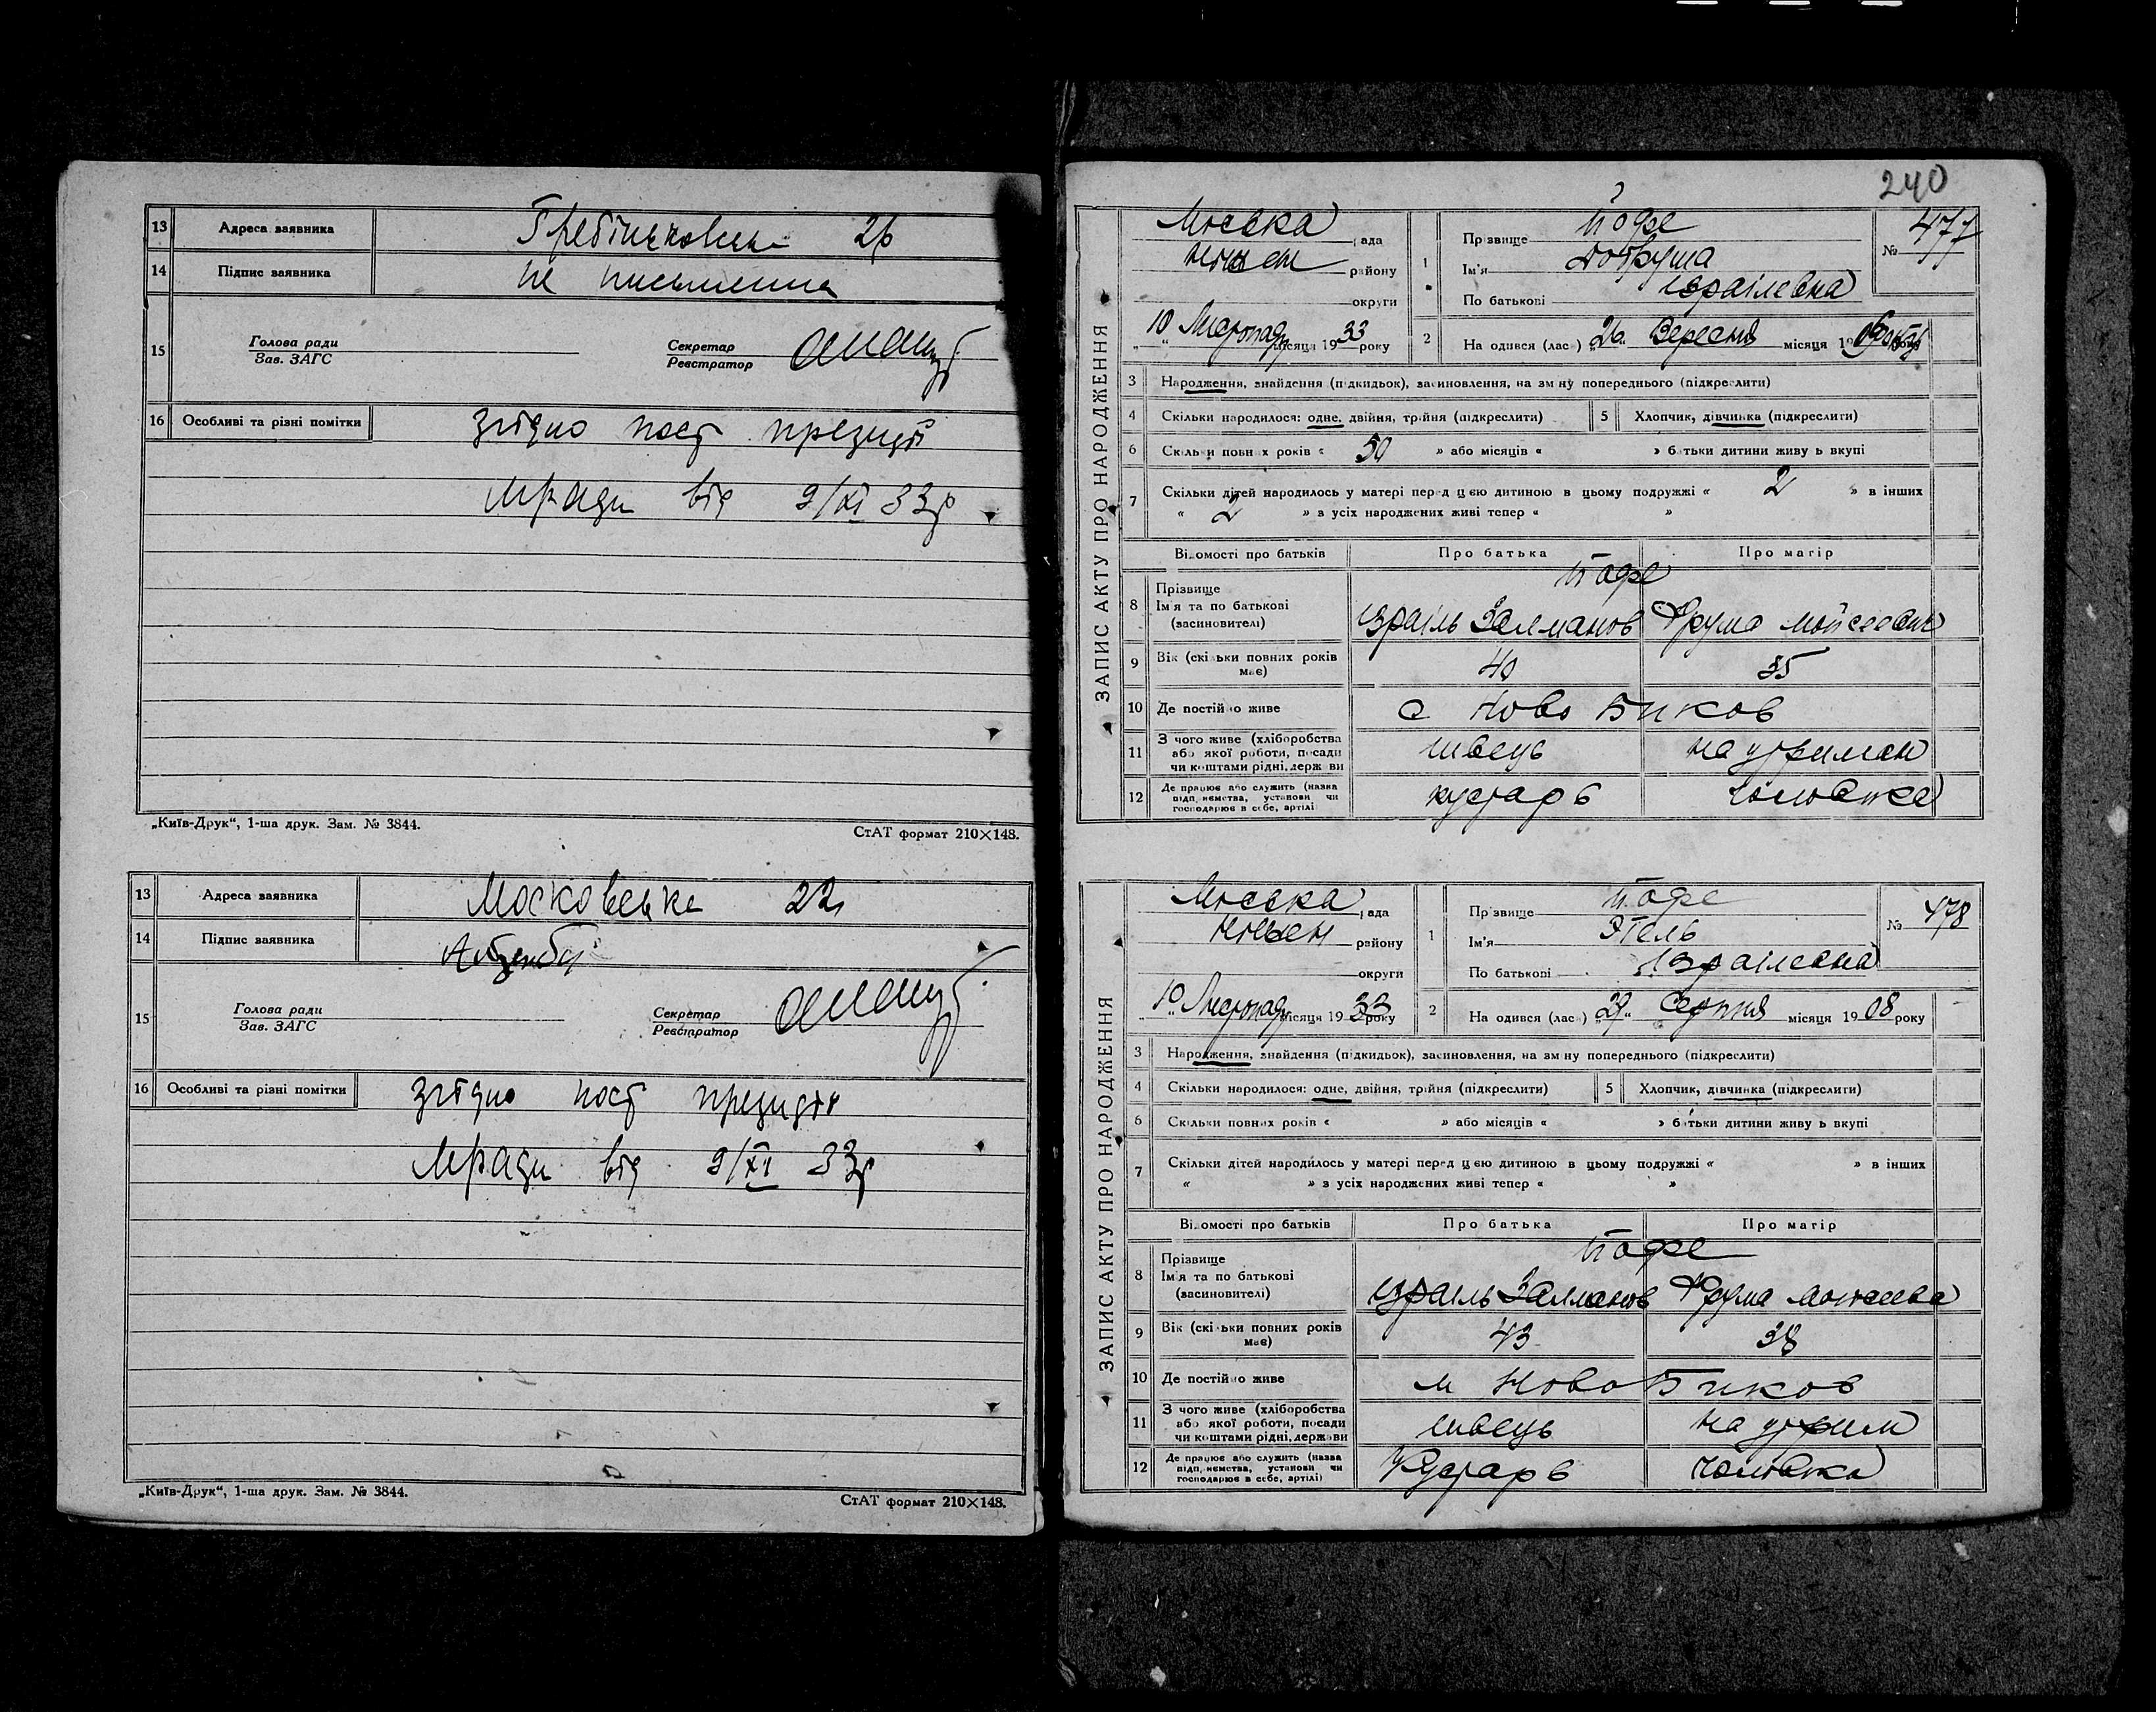 13 Адреса заявника Гребінковська 26
14 Підпис заявника не письменна
15 Голова ради
Зав. ЗАГС
Секретар
Реєстратор
16 Особливі та різні помітки згідно пост президії
Мради від 9/XI 33р
„Київ-Друк“, 1-ша друк. Зам. № 3844. СтАТ формат 210×148.
13 Адреса заявника Московська 22
14 Підпис заявника
15 Голова ради
Зав. ЗАГС
Секретар
Реєстратор
16 Особливі та різні помітки згідно пост президії
Мради від 9/XI 33р
„Київ-Друк“, 1-ша друк. Зам. № 3844. СтАТ формат 210×148.
240
ЗАПИС АКТУ ПРО НАРОДЖЕННЯ
Міська рада
Ніжен району
округи
10 Листопад місяця 1933 року
1 Прізвище Йофе
Ім'я Добруша
По батькові Ізраілевна
№ 477
2 На одився (лас ) „26“ Вересня місяця 19 року
3 Народження, знайдення (підкидьок), засиновлення, на зміну попереднього (підкреслити)
4 Скільки народилося: одне, двійня, трійня (підкреслити) 5 Хлопчик, дівчинка (підкреслити)
6 Скільки повних років « 50 » або місяців « » батьки дитини живуть вкупі
7 Скільки дітей народилось у матері перед цією дитиною в цьому подружжі « 2 » в інших
« 2 » з усіх народжених живі тепер « »
Відомості про батьків Про батька Про матір
8 Прізвище Йофе
Ім'я та по батькові
(засиновителі) Ізраіль Залманов Фрума Мойсеевн
9 Вік (скільки повних років має) 40 35
10 Де постійно живе с Ново Биков
11 З чого живе (хліборобства
або якої роботи, посади
чи коштами рідні, держави швець на утриман
12 Де працює або служить (назва
підприємства, установи чи
господарює в себе, артілі) кустарь чоловіка
ЗАПИС АКТУ ПРО НАРОДЖЕННЯ
Міська рада
Ніжен району
округи
10 Листопад місяця 1933 року
1 Прізвище Йофе
Ім'я Этель
По батькові Ізраілевна
№ 478
2 На одився (лас ) „29“ Серпня місяця 1908 року
3 Народження, знайдення (підкидьок), засиновлення, на зміну попереднього (підкреслити)
4 Скільки народилося: одне, двійня, трійня (підкреслити) 5 Хлопчик, дівчинка (підкреслити)
6 Скільки повних років « » або місяців « » батьки дитини живуть вкупі
7 Скільки дітей народилось у матері перед цією дитиною в цьому подружжі « » в інших
« » з усіх народжених живі тепер « »
Відомості про батьків Про батька Про матір
8 Прізвище Йофе
Ім'я та по батькові
(засиновителі) Ізраіль Залманов Фрума Мойсеевна
9 Вік (скільки повних років має) 43 38
10 Де постійно живе м Ново Биков
11 З чого живе (хліборобства
або якої роботи, посади
чи коштами рідні, держави швець на утрим
12 Де працює або служить (назва
підприємства, установи чи
господарює в себе, артілі) Кустарь чоловіка